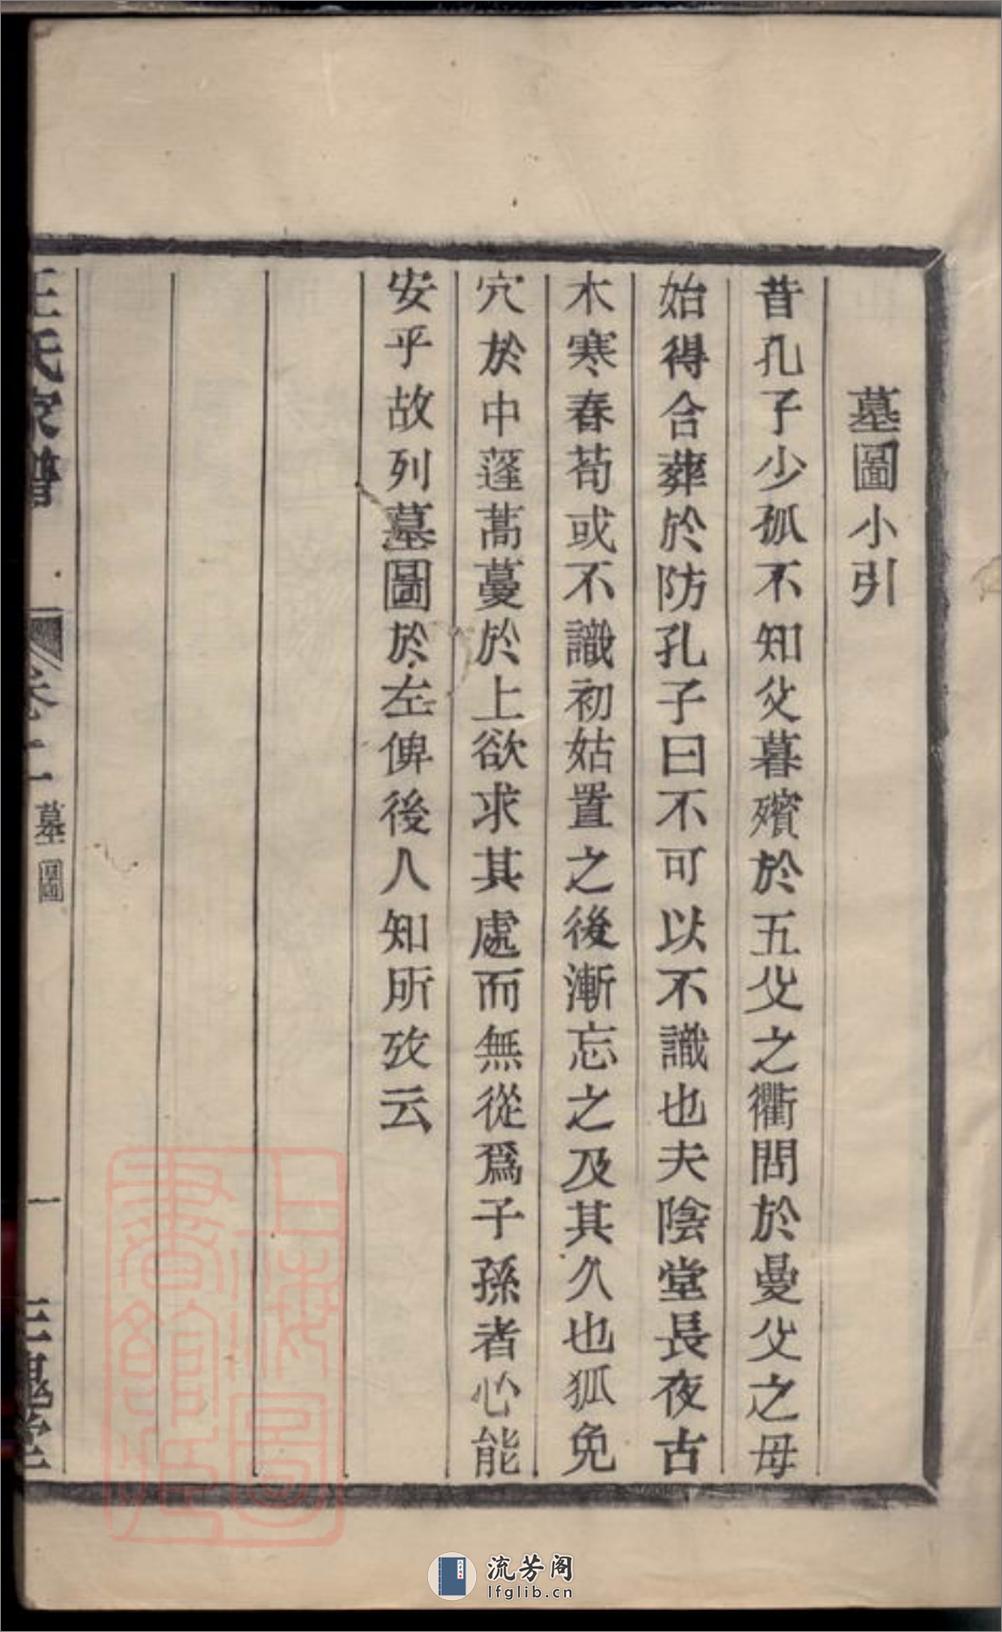 墓圖小引
昔孔子少孤不知父暮殯於五父之衢問於曼父之母
始得合葬於防孔子曰不可以不識也夫陰堂長夜古
木寒春荀或不識初姑置之後漸忘之及其久也狐免
穴於中蓬蒿蔓於上欲求其處而無從爲子孫者心能
安乎故列墓圖於左俾後人知所攷云
王氏家譜
墓圖
一
三槐堂
上海圖書館藏
流芳阁
lfglib.cn